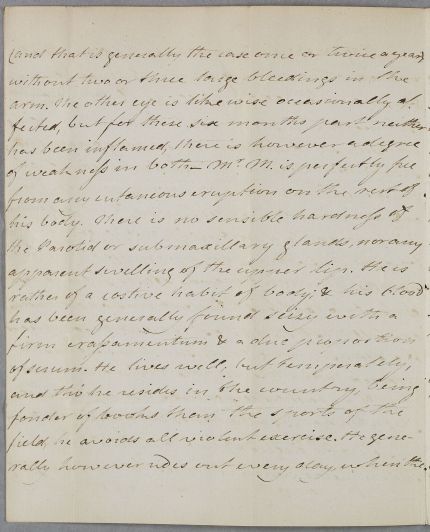 (and that is generally the case once or twice a year)
without two or three large bleedings in the
arm. The other eye is likewise occasionally af-
fected, but for these six months past neither
has been inflamed, there is however a degree
of weakness in both – Mr. M. is perfectly free
from any cutaneous eruption on the rest of
his body. There is no sensible hardness of
the Parotid or submaxillary glands, nor any
apparent swelling of the upper lip. He is
rather of a costive habit of body, & his blood
has been generally found sizy with a
firm crassamentum & a due proportion
of serum. He lives well, but temperately,
and tho' he resides in the country, being
fonder of books than the sports of the
field, he avoids all violent exercise. He gene-
rally however rides out every day, when the